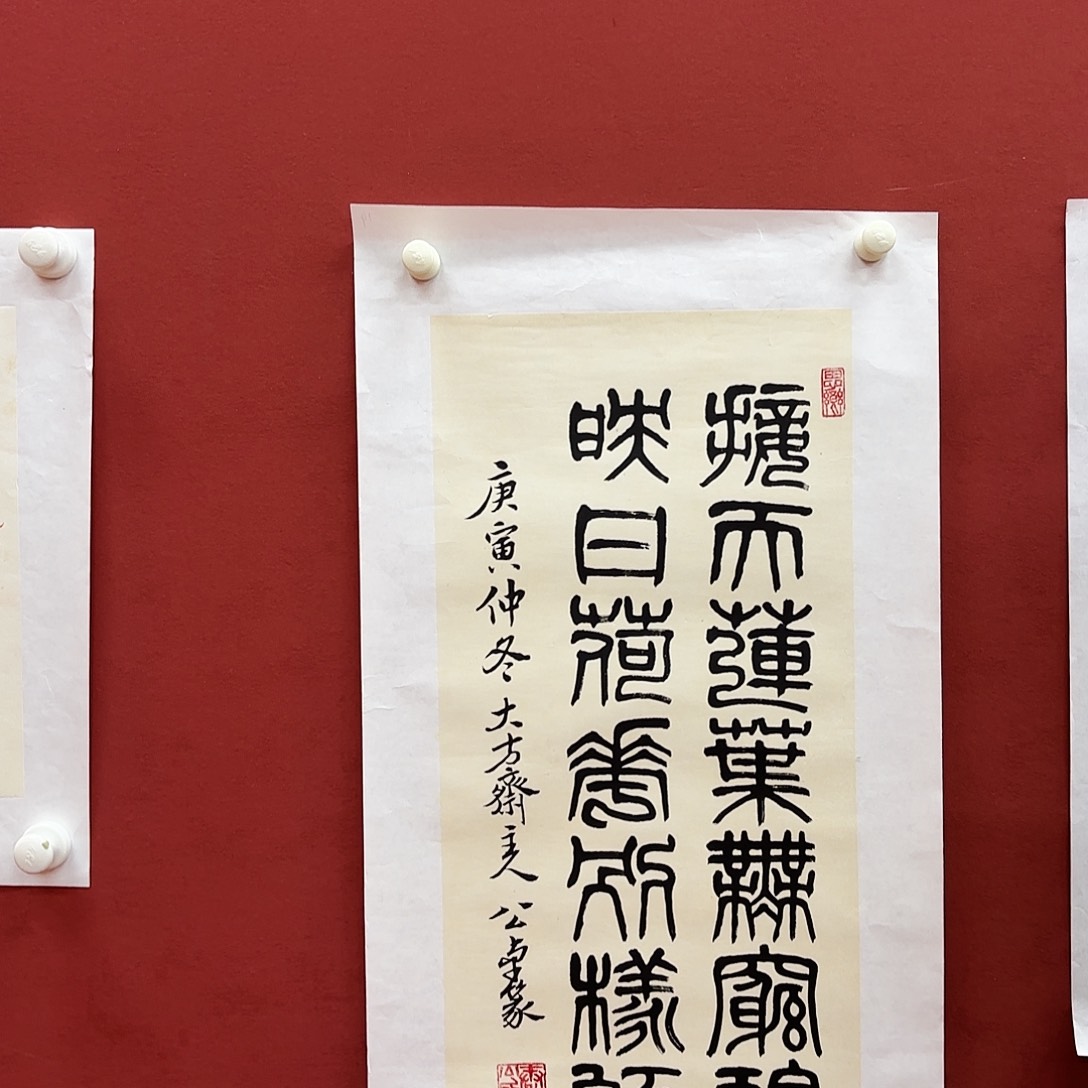 接天蓮葉無窮碧
映日荷花別樣紅
庚寅仲冬大方齋主人公卓篆